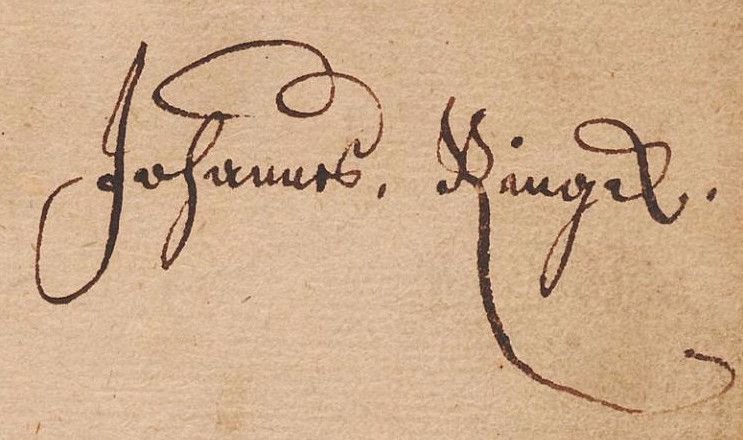 Johannes. Ringel.